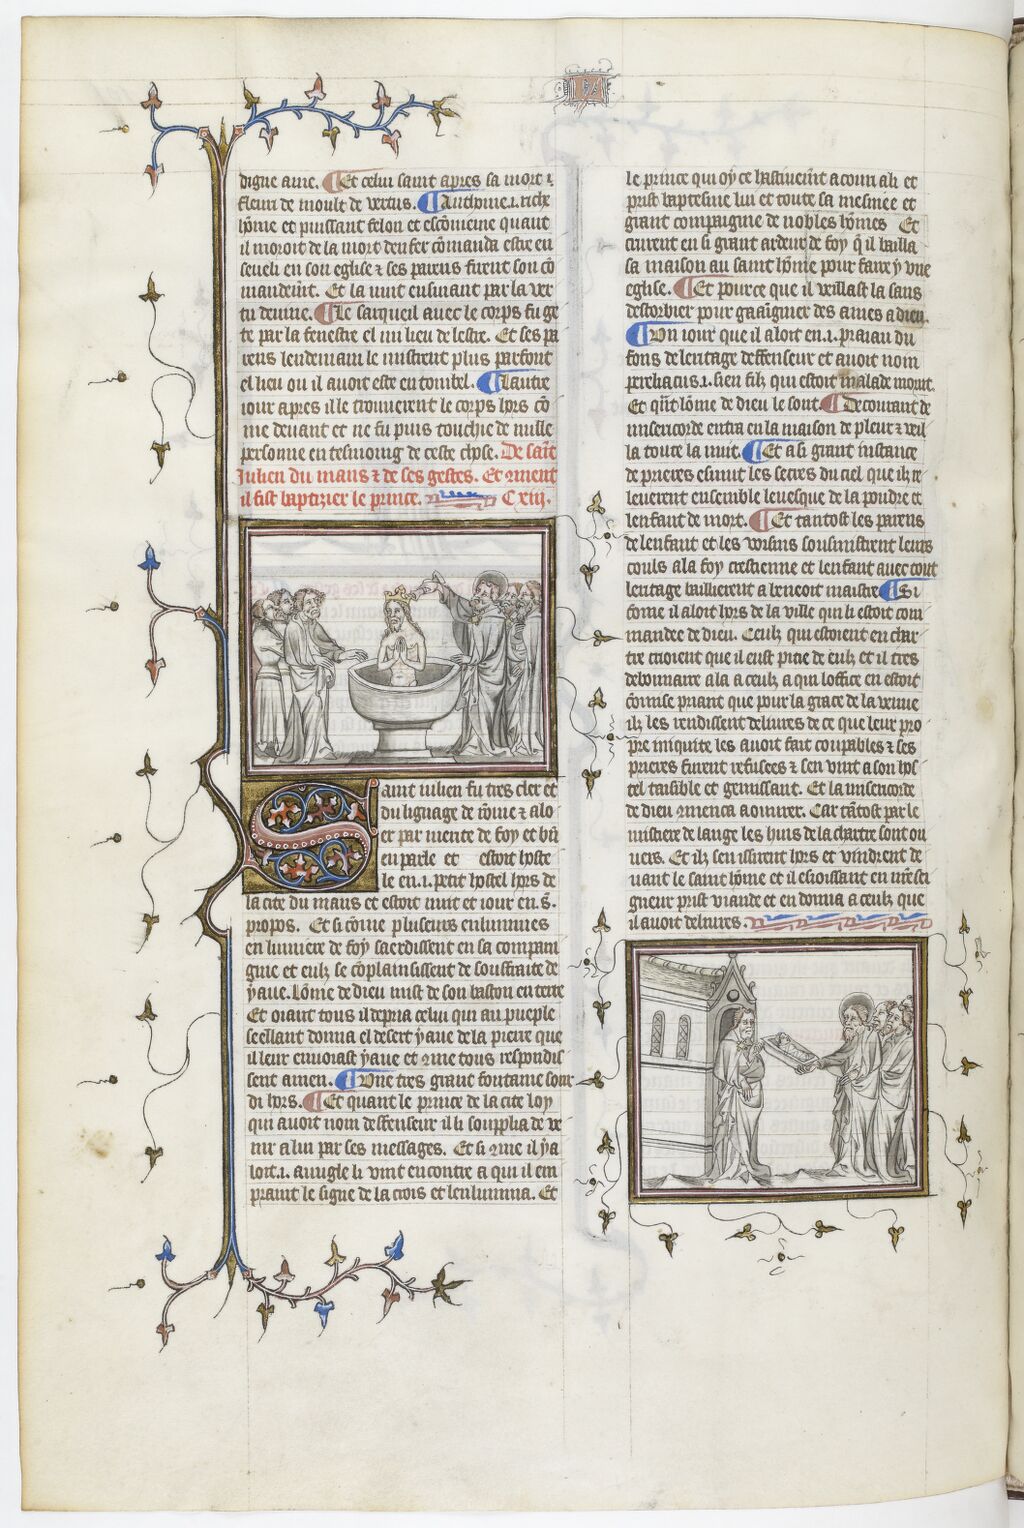 digne ame. Et celui saint apres sa mort i
fleuri de moult de vertus. Anthoine .i. riche
home et puissant felon et escomenie quant
il moroit de la mort denfer comanda estre en
seueli en son eglise z ses parens furent son co
mandemt. Et la nuit ensiuant par la ver
tu deuine. Le sarqueil auec le corps fu ge
te par la fenestre el mi lieu de lestre. Et ses pa
rens lendemain le mistrent plus parfont
el lieu ou il auoit este en tombel. Lautre
iour apres il le trouuerent le corps hors co
me deuant et ne fu puis touchie de nulle
personne en tesmoing de ceste chose. De saint
Julien du mans z de ses gestes. Et 9ment
il fist baptizier le prince. Cxiij.
Saint iulien fu tres cler et
du lignage de rome z alo
er par merite de foy et bn
en parle et estoit hoste
le en .i. petit hostel hors de
la cite du mans et estoit nuit et iour en s.
propos. Et si come pluseurs enlumines
en lumiere de foy saerdissent en sa compai
gnie et eulz se complainsissent de souffraite de
yaue. Lome de dieu mist de son baston en terre
Et oiant tous il depria celui qui au pueple
seellant donna el desert yaue de la pierre que
il leur enuoiast yaue et 9me tous respondis
sent amen. Une tres grant fontaine sour
di hors. Et quant le prince de la cite loy
qui auoit nom deffenseur il li supplia de ve
nir a lui par ses messages. Et si 9me il ya
loit .i. auugle li vint encontre a qui il em
praint le signe de la crois et lenlumina. Et
le prince qui oy ce hastiuemt acouru ali et
prist baptesme lui et toute sa mesniee et
grant compaignie de nobles homes Et
cururent en si grant ardeur de foy q il bailla
sa maison au saint home pour faire y vne
eglise. Et pource que il veillast la sans
destorbier pour gaaignier des ames a dieu.
Un iour que il aloit en .i. praiau du
fons de lentage deffenseur et auoit nom
.i. sien filz qui estoit malade morut.
Et qnt lome de dieu le sout. Decourant de
misericorde entra en la maison de pleur z veil
la toute la nuit. Et a si grant instance
de prieres esmut les secres du ciel que ilz re
leuerent ensemble leuesque de la poudre et
lenfant de mort. Et tantost les parens
de lenfant et les voisins sousmistrent leurs
couls a la foy crestienne et lenfant auec tout
lentage baillierent a benoit maistre Si
come il aloit hors de la ville qui li estoit com
mandee de dieu. Ceulz qui estoient en char
tre crioient que il eust pitie de eulz et il tres
debonnaire ala a ceulz a qui loffice en estoit
comise priant que pour la grace de la venue
ilz les rendissent deliures de ce que leur pro
pre iniquite les auoit fait coupables z ses
prieres furent refusees z sen vint a son hos
tel taisible et gemissant. Et la misericorde
de dieu 9menca a ourer. Car tantost par le
mistere de lange les huis de la chartre sont ou
uers. Et ilz sen issirent hors et vindrent de
uant le saint home et il esioissant en nre sei
gneur prist viande et en donna a ceulz que
il auoit deliures.